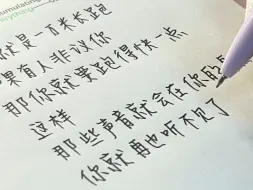 umulating
rything
就是一百米长跑
果有人非议你
那你就要跑得快一点
这样
那些声音就会在你的
你就再也听不见了